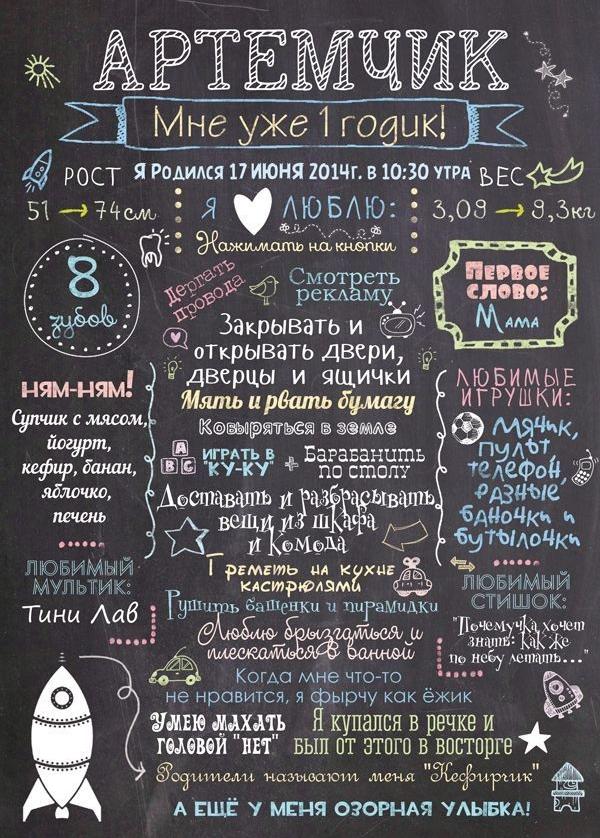 АРТЕМЧИК
Мне уже 1 годик!
Я РОДИЛСЯ 17 ИЮНЯ 2014г. В 10:30 УТРА
РОСТ
51 → 74см
ВЕС
3,09 → 9,3кг
Я ЛЮБЛЮ:
Нажимать на кнопки
Дергать
провода
Смотреть
рекламу
8
зубов
Первое
слово:
Мама
Закрывать и
открывать двери,
дверцы и ящички
Мять и рвать бумагу
Ковыряться в земле
A
B C
ИГРАТЬ В
"КУ-КУ" + Барабанить
по столу
Доставать и разбрасывать
вещи из шкафа
и комода
Греметь на кухне
кастрюлями
Рушить башенки и пирамидки
Люблю брызгаться и
плескаться в ванной
Когда мне что-то
не нравится, я фырчу как ёжик
ням-ням!
Супчик с мясом,
йогурт,
кефир, банан,
яблочко,
печень
ЛЮБИМЫЕ
ИГРУШКИ:
Мячик,
пульт,
телефон,
разные
баночки и
бутылочки
ЛЮБИМЫЙ
МУЛЬТИК:
Тини Лав
ЛЮБИМЫЙ
СТИШОК:
"Почемучка хочет
знать: как же
по небу летать..."
Умею махать
головой "нет"
Я купался в речке и
был от этого в восторге
Родители называют меня "Кефирчик"
А ЕЩЁ У МЕНЯ ОЗОРНАЯ УЛЫБКА!